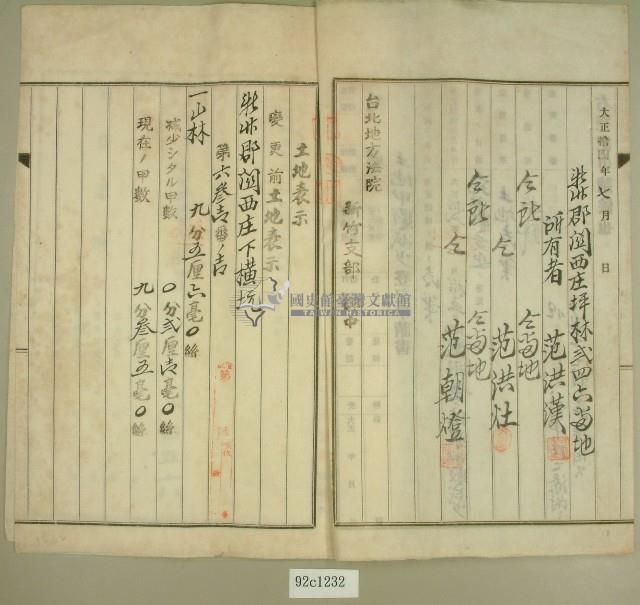 大正拾四年七月 日
新竹郡関西庄坪林弐四六番地
所有者 范洪漢
仝所 仝番地
仝 范洪灶
仝所 仝番地
仝 范朝燈
台北地方法院
新竹支部 御中
土地表示
変更前土地表示
新竹郡関西庄下横坑
第六参壱番ノ壱
一山林
九分五厘六毫0絲
減少シタル甲数
0分弐厘壱毫0絲
現在ノ甲数
九分参厘五毫0絲
國史館臺灣文獻館
TAIWAN HISTORICA
92c1232